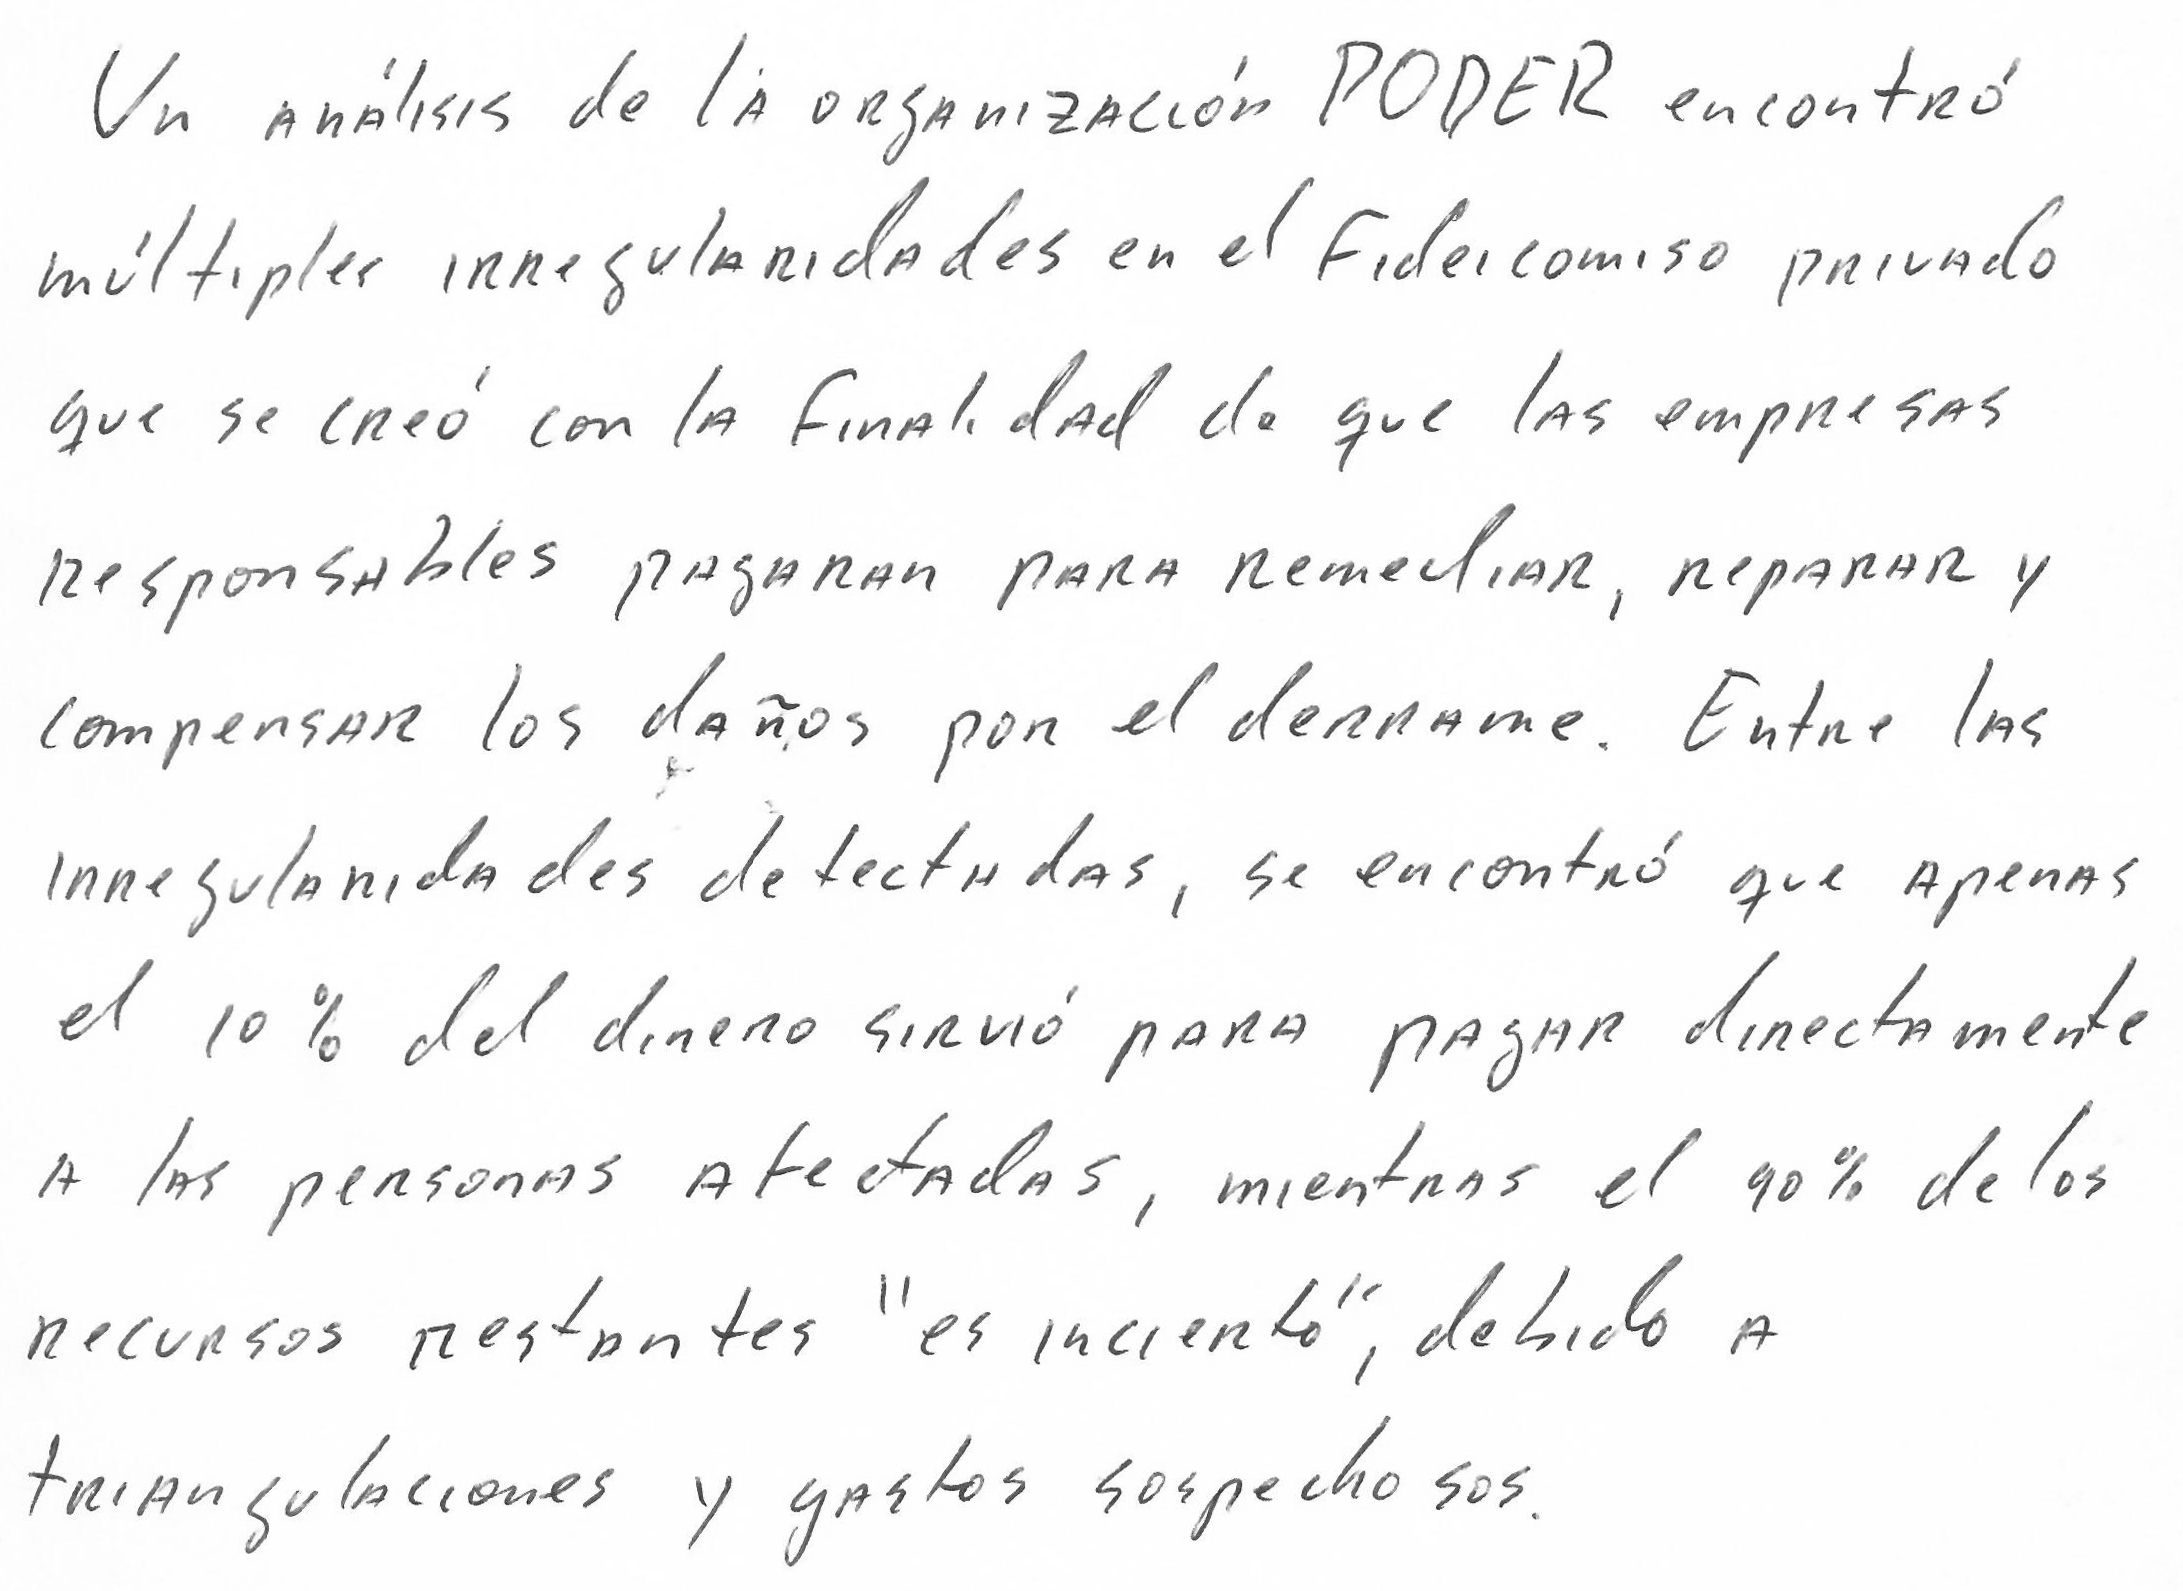 Un análisis de la organización PODER encontró
múltiples irregularidades en el Fideicomiso privado
que se creó con la finalidad de que las empresas
responsables pagaran para remediar, reparar y
compensar los daños por el derrame. Entre las
irregularidades detectadas, se encontró que apenas
el 10% del dinero sirvió para pagar directamente
a las personas afectadas, mientras el 90% de los
recursos restantes "es incierto", debido a
triangulaciones y gastos sospechosos.